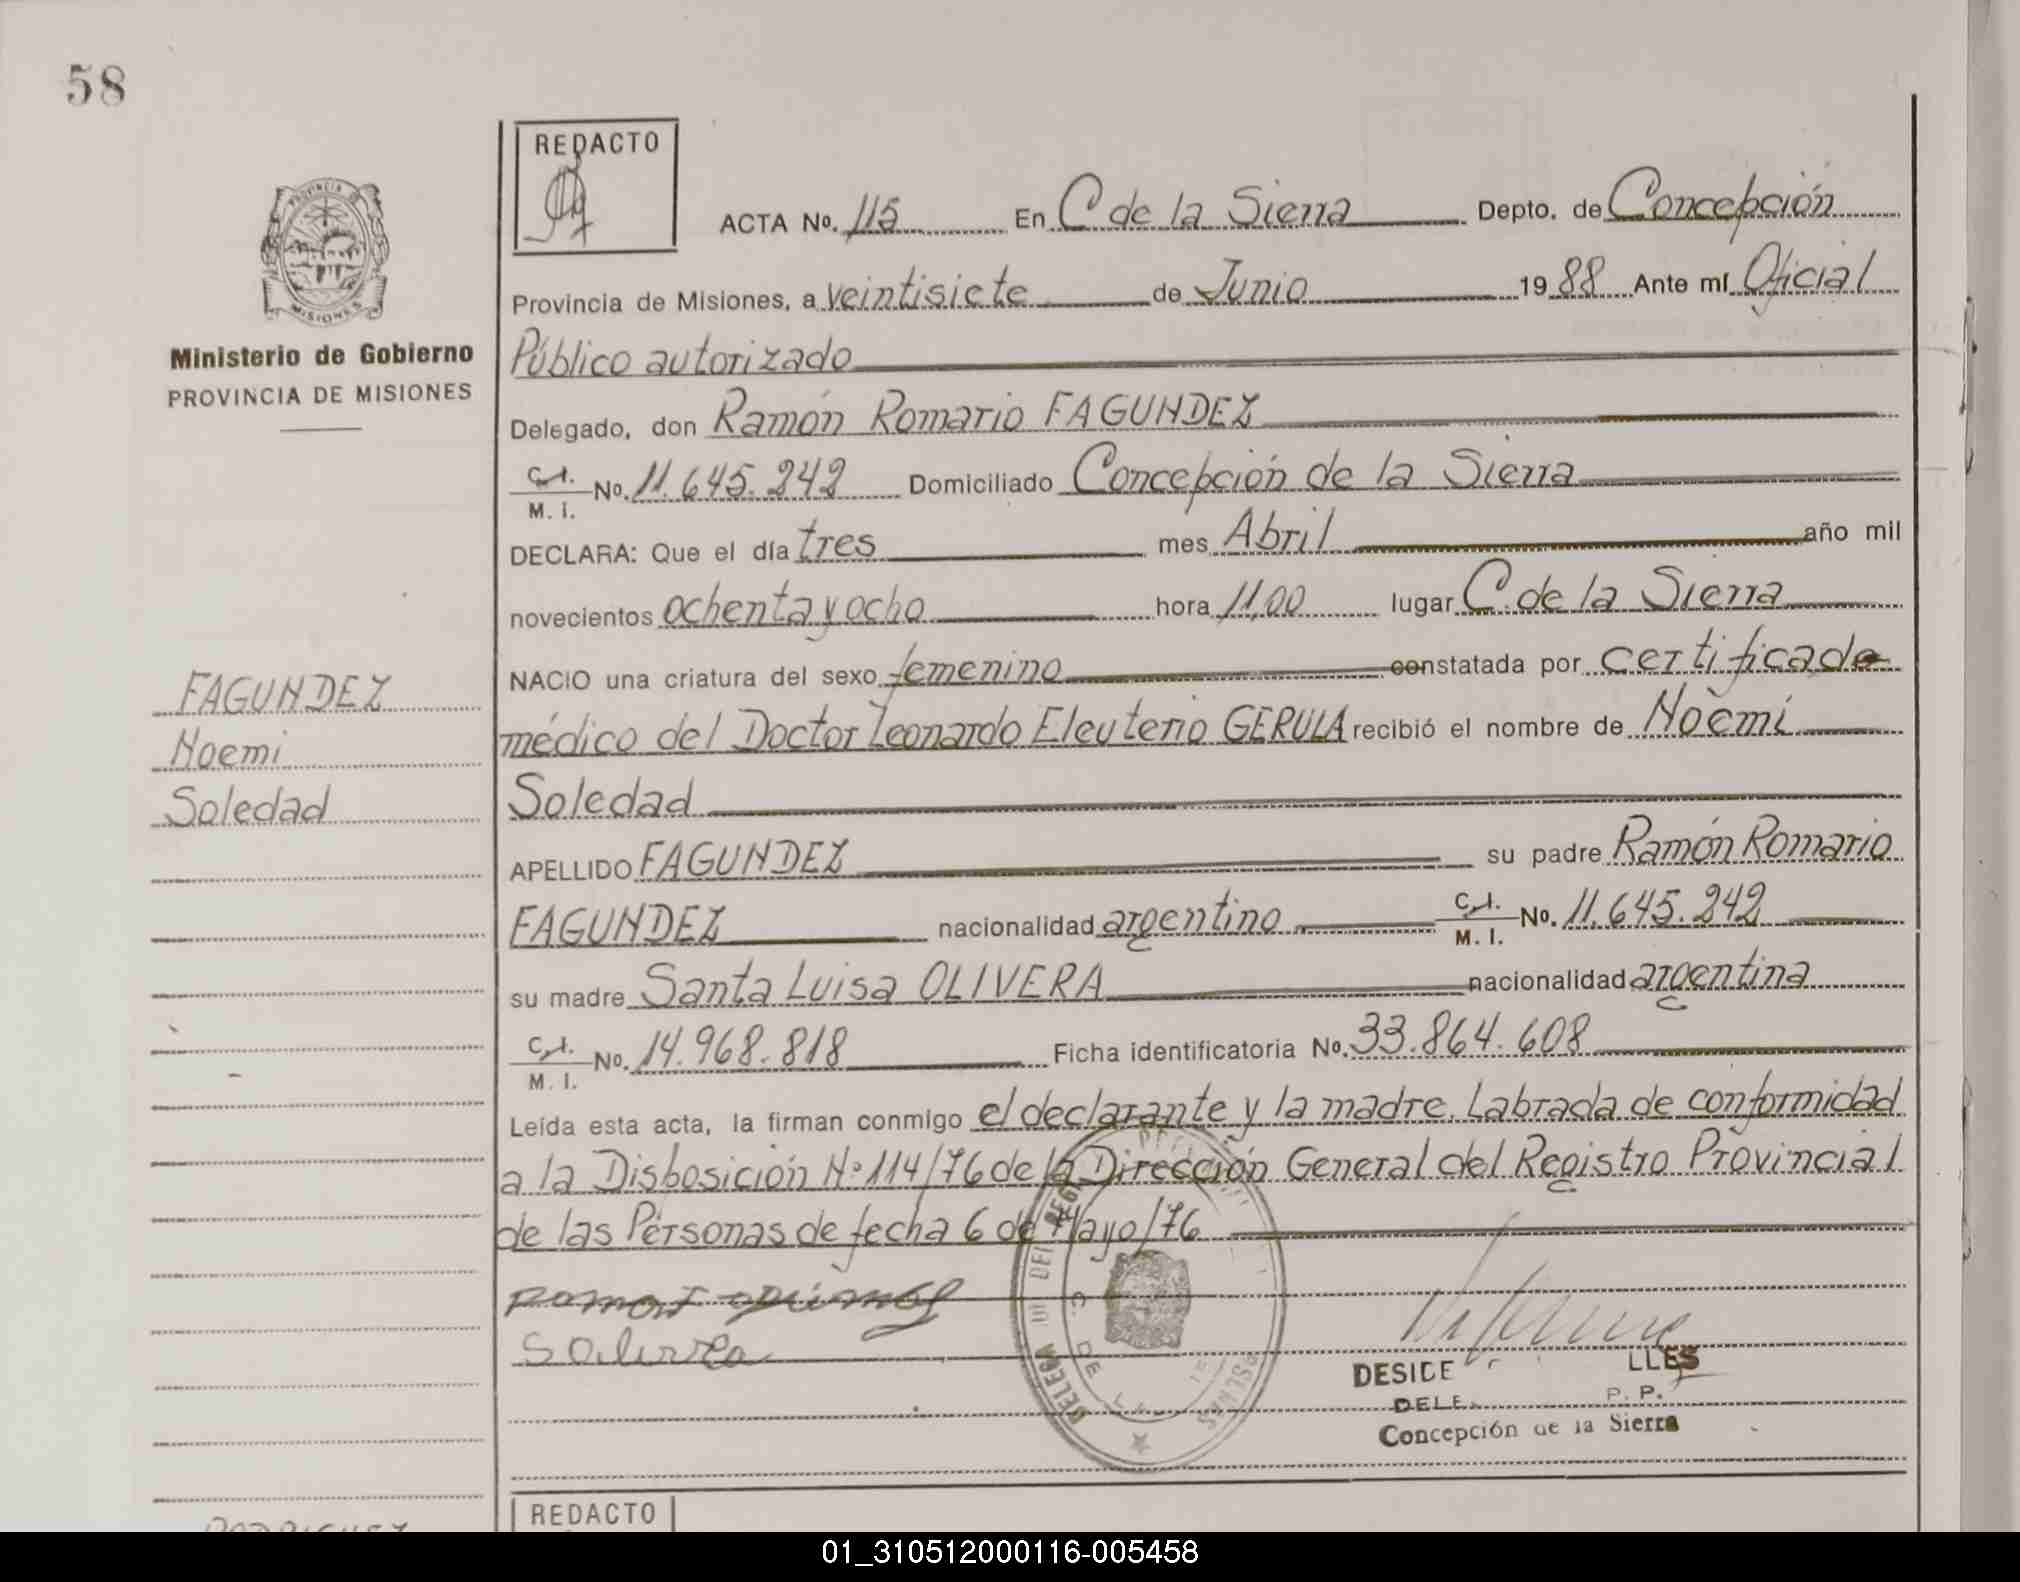 58
REDACTO
ACTA No. 115 En C de la Sierra Depto. de Concepción
Provincia de Misiones, a veintisiete de Junio 1988 Ante mí Oficial
Ministerio de Gobierno
PROVINCIA DE MISIONES
Público autorizado
Delegado, don Ramón Romario FAGUNDEZ
C.I. M. I. No. 11.645.242 Domiciliado Concepción de la Sierra
DECLARA: Que el día tres mes Abril año mil
novecientos ochenta y ocho hora 11,00 lugar C. de la Sierra
NACIO una criatura del sexo femenino constatada por certificado
médico del Doctor Leonardo Eleuterio GERULA recibió el nombre de Noèmi
Soledad
FAGUNDEZ
Noemi
Soledad
APELLIDO FAGUNDEZ su padre Ramón Romario
FAGUNDEZ nacionalidad argentino C.I. M. I. No. 11.645.242
su madre Santa Luisa OLIVERA nacionalidad argentina
C.I. M. I. No. 14.968.818 Ficha identificatoria No. 33.864.608
Leída esta acta, la firman conmigo el declarante y la madre. Labrada de conformidad
a la Disposición Nº 114/76 de la Dirección General del Registro Provincial
de las Personas de fecha 6 de Mayo/76
DELEGA
DE
MISIONES
DESIDE LLES
DELE P. P.
Concepción de la Sierra
REDACTO
01_310512000116-005458